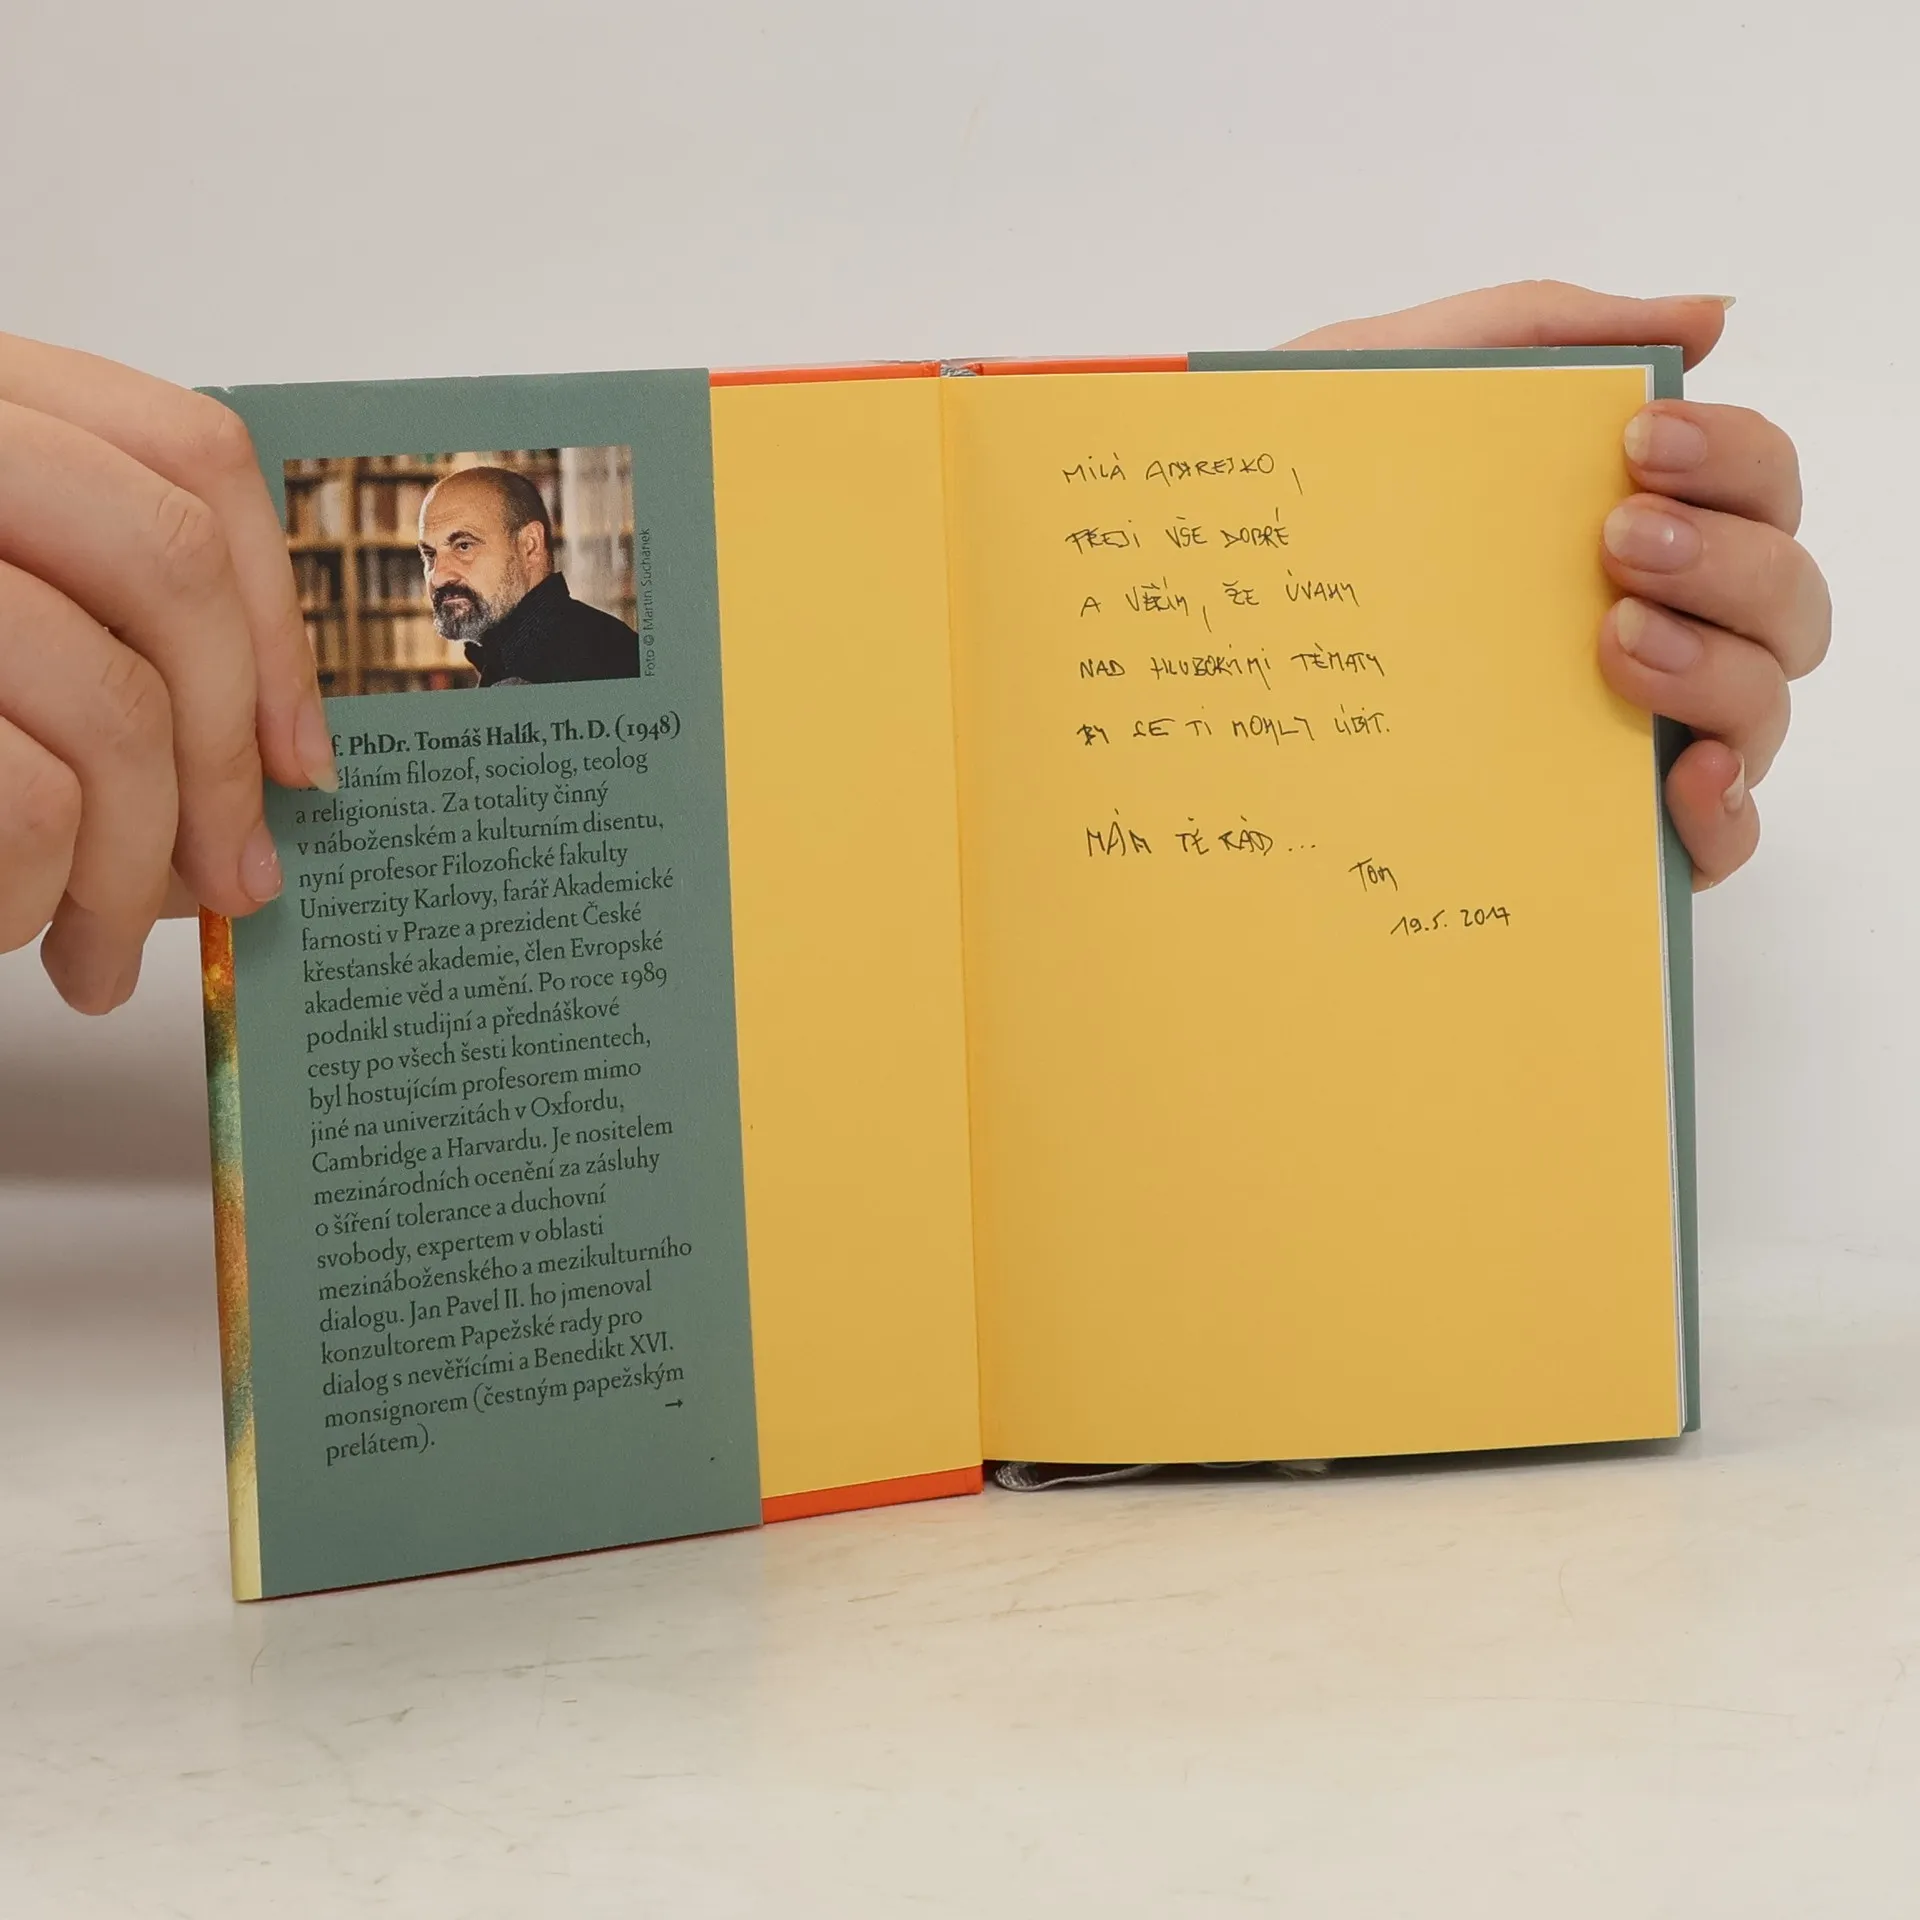 Foto © Martin Suchánek
f. PhDr. Tomáš Halík, Th. D. (1948)
ěláním filozof, sociolog, teolog
a religionista. Za totality činný
v náboženském a kulturním disentu,
nyní profesor Filozofické fakulty
Univerzity Karlovy, farář Akademické
farnosti v Praze a prezident České
křesťanské akademie, člen Evropské
akademie věd a umění. Po roce 1989
podnikl studijní a přednáškové
cesty po všech šesti kontinentech,
byl hostujícím profesorem mimo
jiné na univerzitách v Oxfordu,
Cambridge a Harvardu. Je nositelem
mezinárodních ocenění za zásluhy
o šíření tolerance a duchovní
svobody, expertem v oblasti
mezináboženského a mezikulturního
dialogu. Jan Pavel II. ho jmenoval
konzultorem Papežské rady pro
dialog s nevěřícími a Benedikt XVI.
monsignorem (čestným papežským
prelátem). →
MILÁ ANDREJKO,
PŘEJI VŠE DOBRÉ
A VĚŘÍM, ŽE ÚVAHY
NAD HLUBOKÝMI TÉMATY
BY SE TI MOHLY LÍBIT.
MÁM TĚ RÁD...
TOM
19.5. 2017